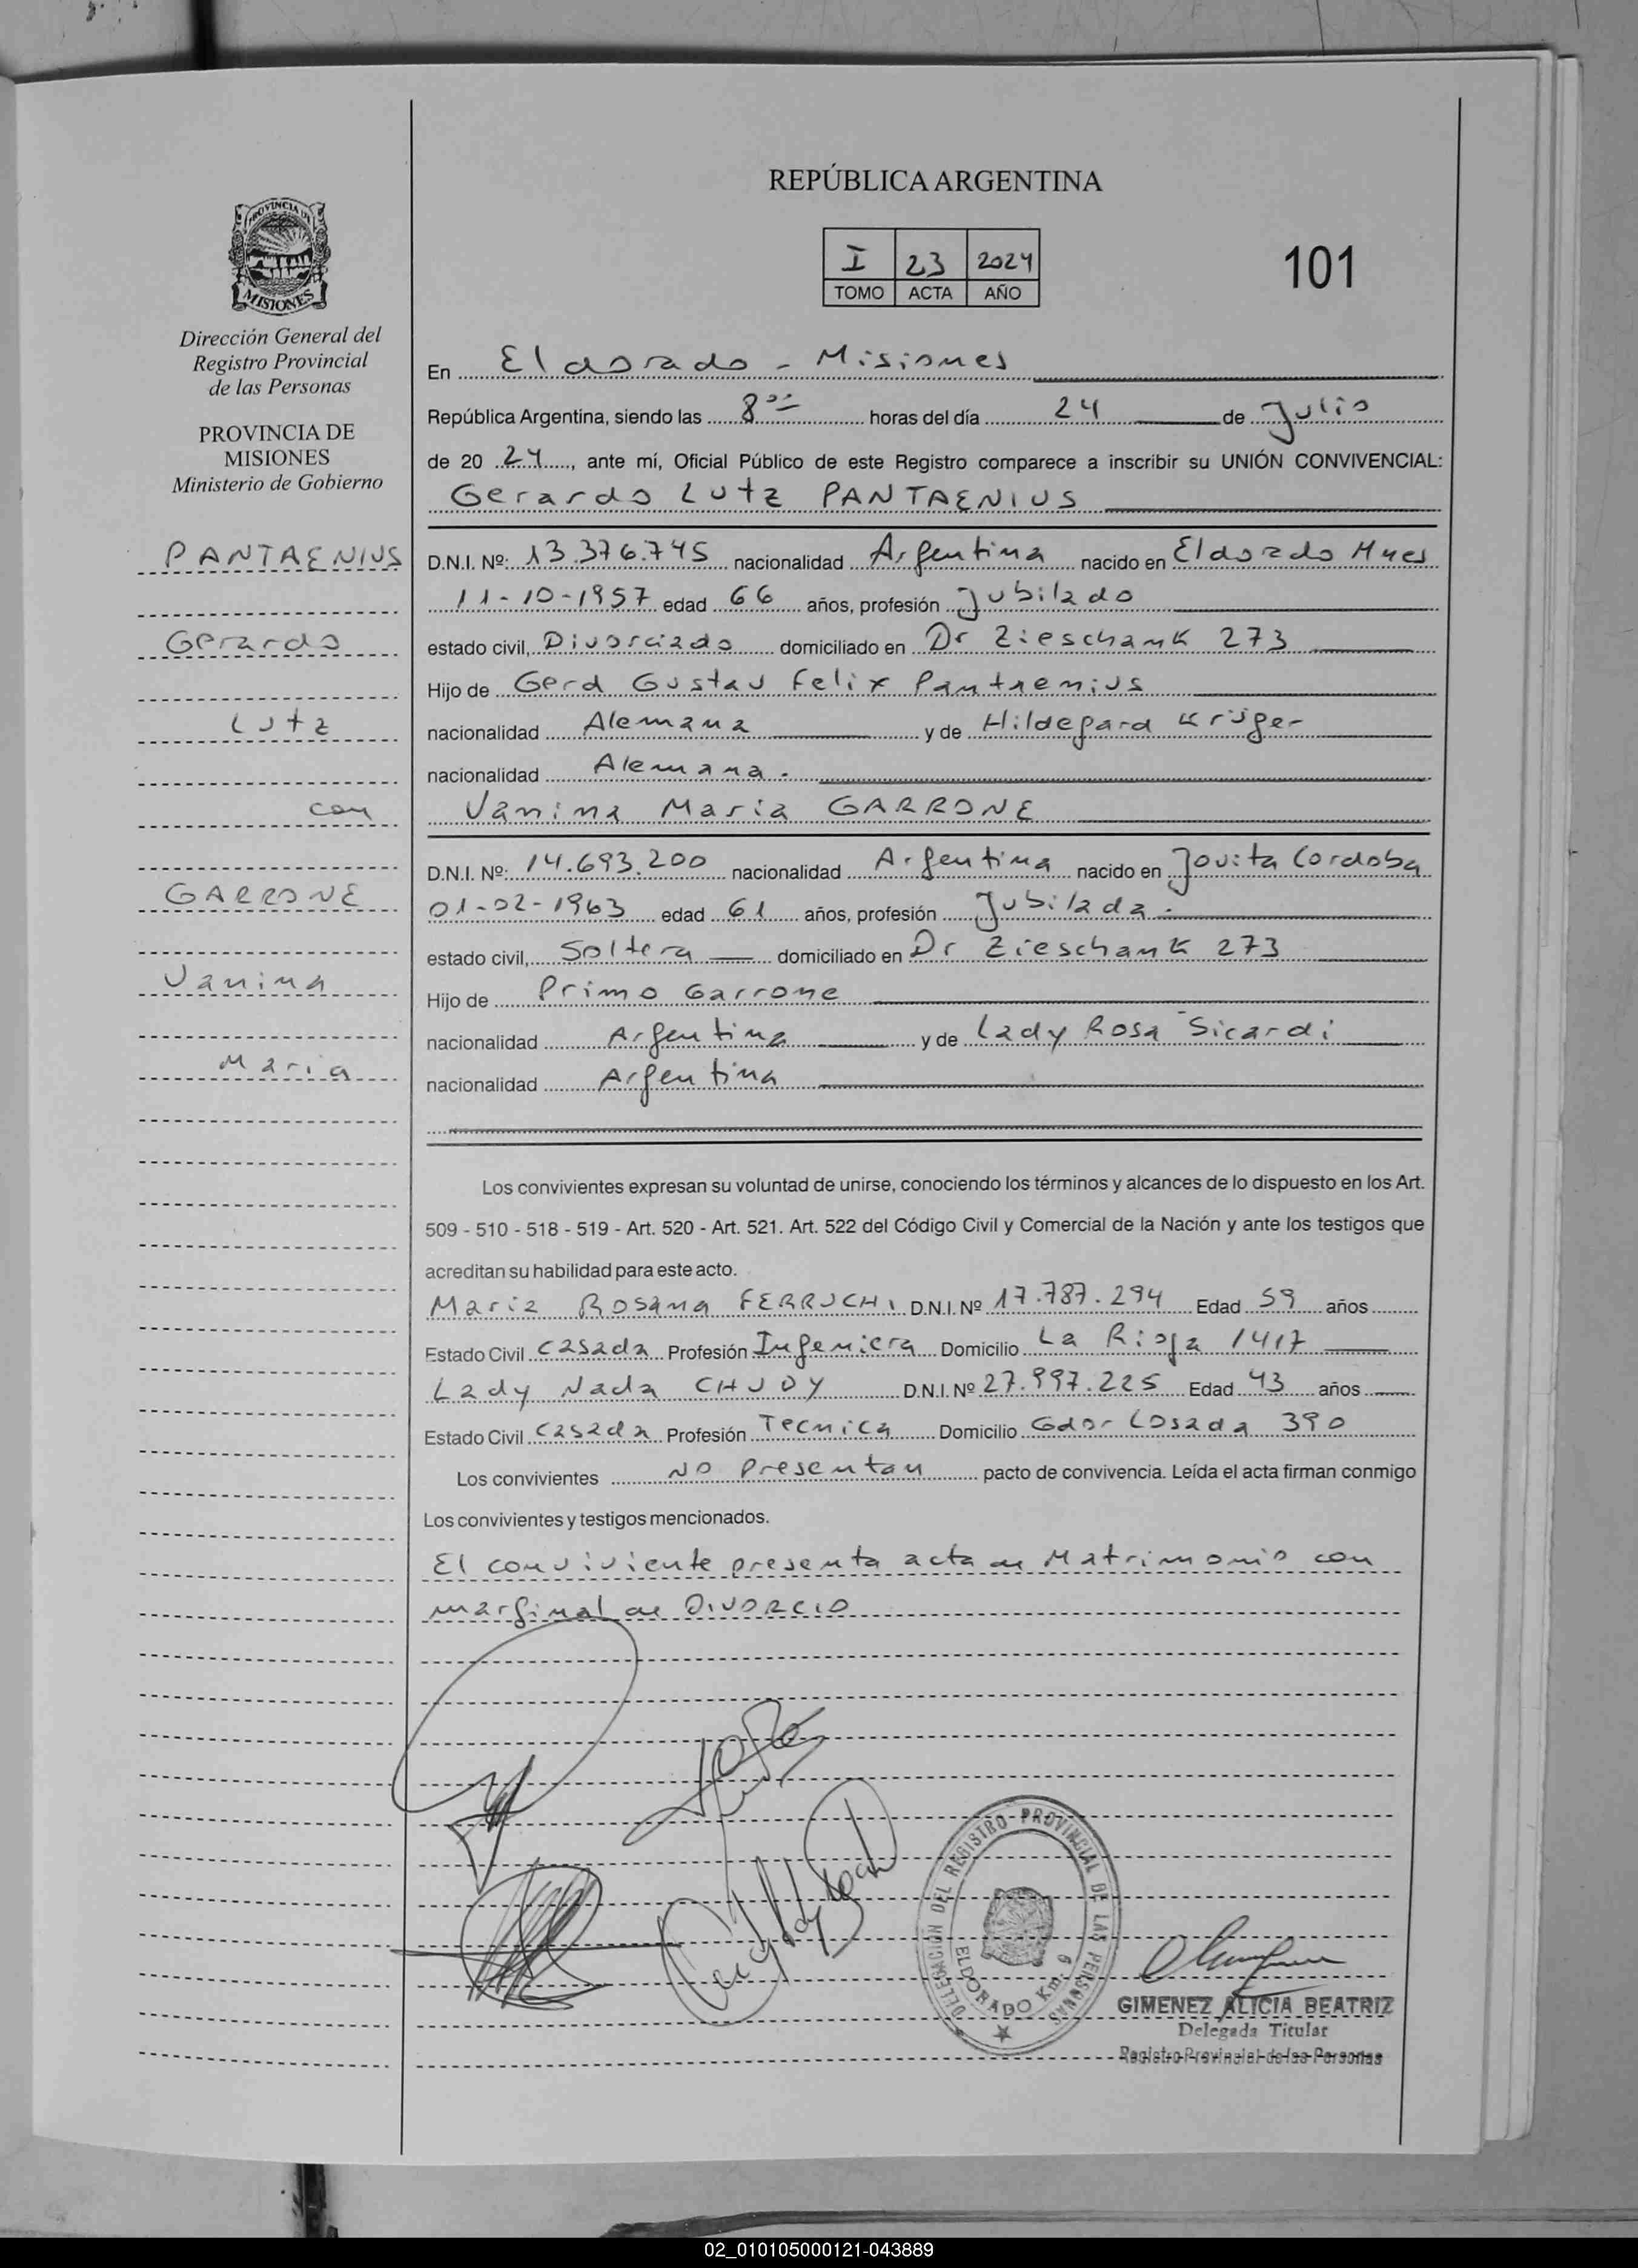 REPÚBLICA ARGENTINA
I 23 2024
TOMO ACTA AÑO
101
PROVINCIA DE
MISIONES
Dirección General del
Registro Provincial
de las Personas
PROVINCIA DE
MISIONES
Ministerio de Gobierno
PANTAENIUS
Gerardo
Lutz
con
GARRONE
Vanina
Maria
En Eldorado - Misiones
República Argentina, siendo las 8 00 horas del día 24 de Julio
de 20 24, ante mí, Oficial Público de este Registro comparece a inscribir su UNIÓN CONVIVENCIAL:
Gerardo Lutz PANTAENIUS
D.N.I. Nº: 13.376.745 nacionalidad Argentina nacido en Eldorado Mnes
11-10-1957 edad 66 años, profesión Jubilado
estado civil, Divorciado domiciliado en Dr Zieschank 273
Hijo de Gerd Gustav Felix Pantaenius
nacionalidad Alemana y de Hildegard Krüger
nacionalidad Alemana.
Vanina Maria GARRONE
D.N.I. Nº: 14.693.200 nacionalidad Argentina nacido en Jovita Cordoba
01-02-1963 edad 61 años, profesión Jubilada.
estado civil, Soltera domiciliado en Dr Zieschank 273
Hijo de Primo Garrone
nacionalidad Argentina y de Lady Rosa Sicardi
nacionalidad Argentina
Los convivientes expresan su voluntad de unirse, conociendo los términos y alcances de lo dispuesto en los Art.
509 - 510 - 518 - 519 - Art. 520 - Art. 521. Art. 522 del Código Civil y Comercial de la Nación y ante los testigos que
acreditan su habilidad para este acto.
Maria Rosana FERRUCHI D.N.I. Nº 17.787.294 Edad 59 años
Estado Civil Casada Profesión Ingeniera Domicilio La Rioja 1417
Lady Nada CHUDY D.N.I. Nº 27.997.225 Edad 43 años
Estado Civil Casada Profesión Tecnica Domicilio Gdor Losada 390
Los convivientes NO presentan pacto de convivencia. Leída el acta firman conmigo
Los convivientes y testigos mencionados.
El conviviente presenta acta de Matrimonio con
marginal de DIVORCIO
DELEGACIÓN DEL REGISTRO PROVINCIAL DE LAS PERSONAS
ELDORADO Km. 9
GIMENEZ ALICIA BEATRIZ
Delegada Titular
Registro Provincial de las Personas
02_010105000121-043889